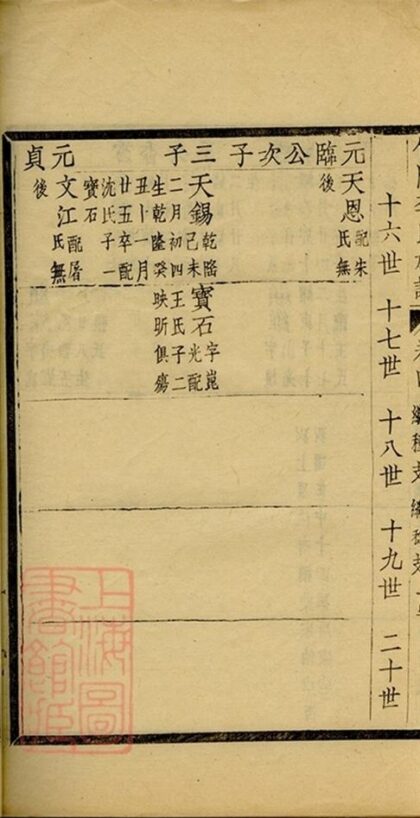 十六世 十七世 十八世 十九世 二十世
元臨公次子
天恩 配朱氏無後
三子
天錫 乾隆己未二月初四生乾隆癸丑十一月廿五卒配沈氏子一寶石
寶石 字崑光配王氏子二映昕俱殤
元貞
文江 配屠氏無後
上海圖書館藏